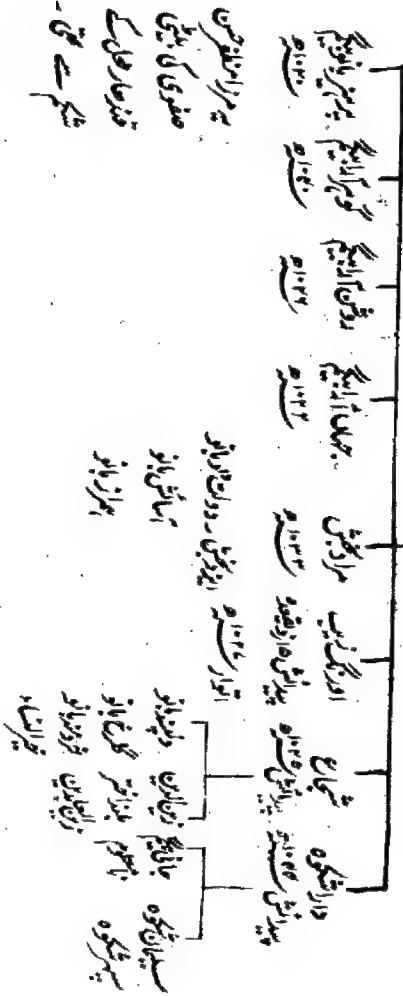 داراشکوہ
پیدائش ۱۰۲۴ھ
سلیمان شکوہ
سپہر شکوہ
جانی بیگم
نامعلوم
شجاع
پیدائش ۱۰۲۵ھ
زین الدین
بلند اختر
زین العابدین
دلپذیر بانو
گلرخ بانو
اورنگ زیب
پیدائش ۱۵ ذیقعدہ
اتوار ۱۰۲۷ھ
مراد بخش
۱۰۳۳ھ
ایزد بخش - دوستدار بانو
آسائش بانو
ہمراز بانو
جہاں آرا بیگم
۱۰۲۳ھ
روشن آرا بیگم
۱۰۲۶ھ
گوہر آرا بیگم
۱۰۴۰ھ
پرہیز بانو بیگم
۱۰۲۰ھ
یہ مرزا مظفر حسین
صفوی کی بیٹی
قندھار محل کے
شکم سے تھی -